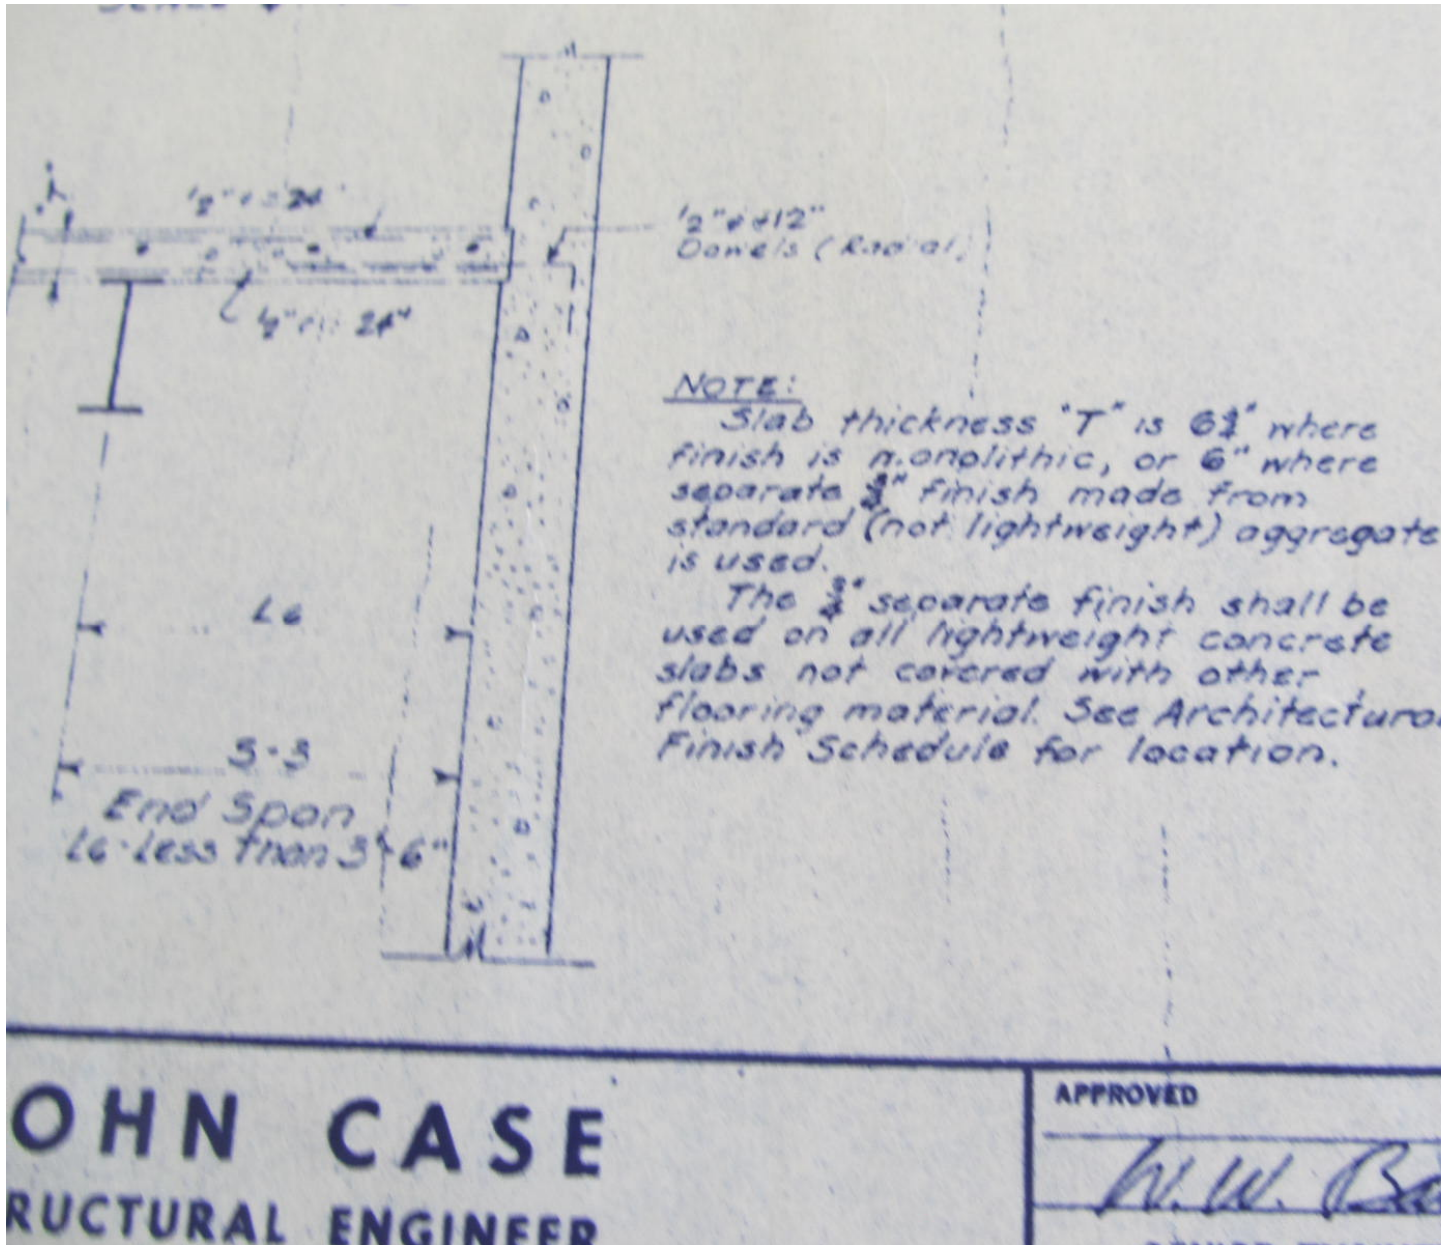 ½"φ @ 24"
½"φ @ 24"
½"φ @ 12"
Dowels (Radial)
NOTE:
Slab thickness "T" is 6¾" where
finish is monolithic, or 6" where
separate ¾" finish made from
standard (not lightweight) aggregate
is used.
The ¾" separate finish shall be
used on all lightweight concrete
slabs not covered with other
flooring material. See Architectural
Finish Schedule for location.
L6
S-3
End Span
L6-Less than 3'-6"
OHN CASE
RUCTURAL ENGINEER
APPROVED
W. W.